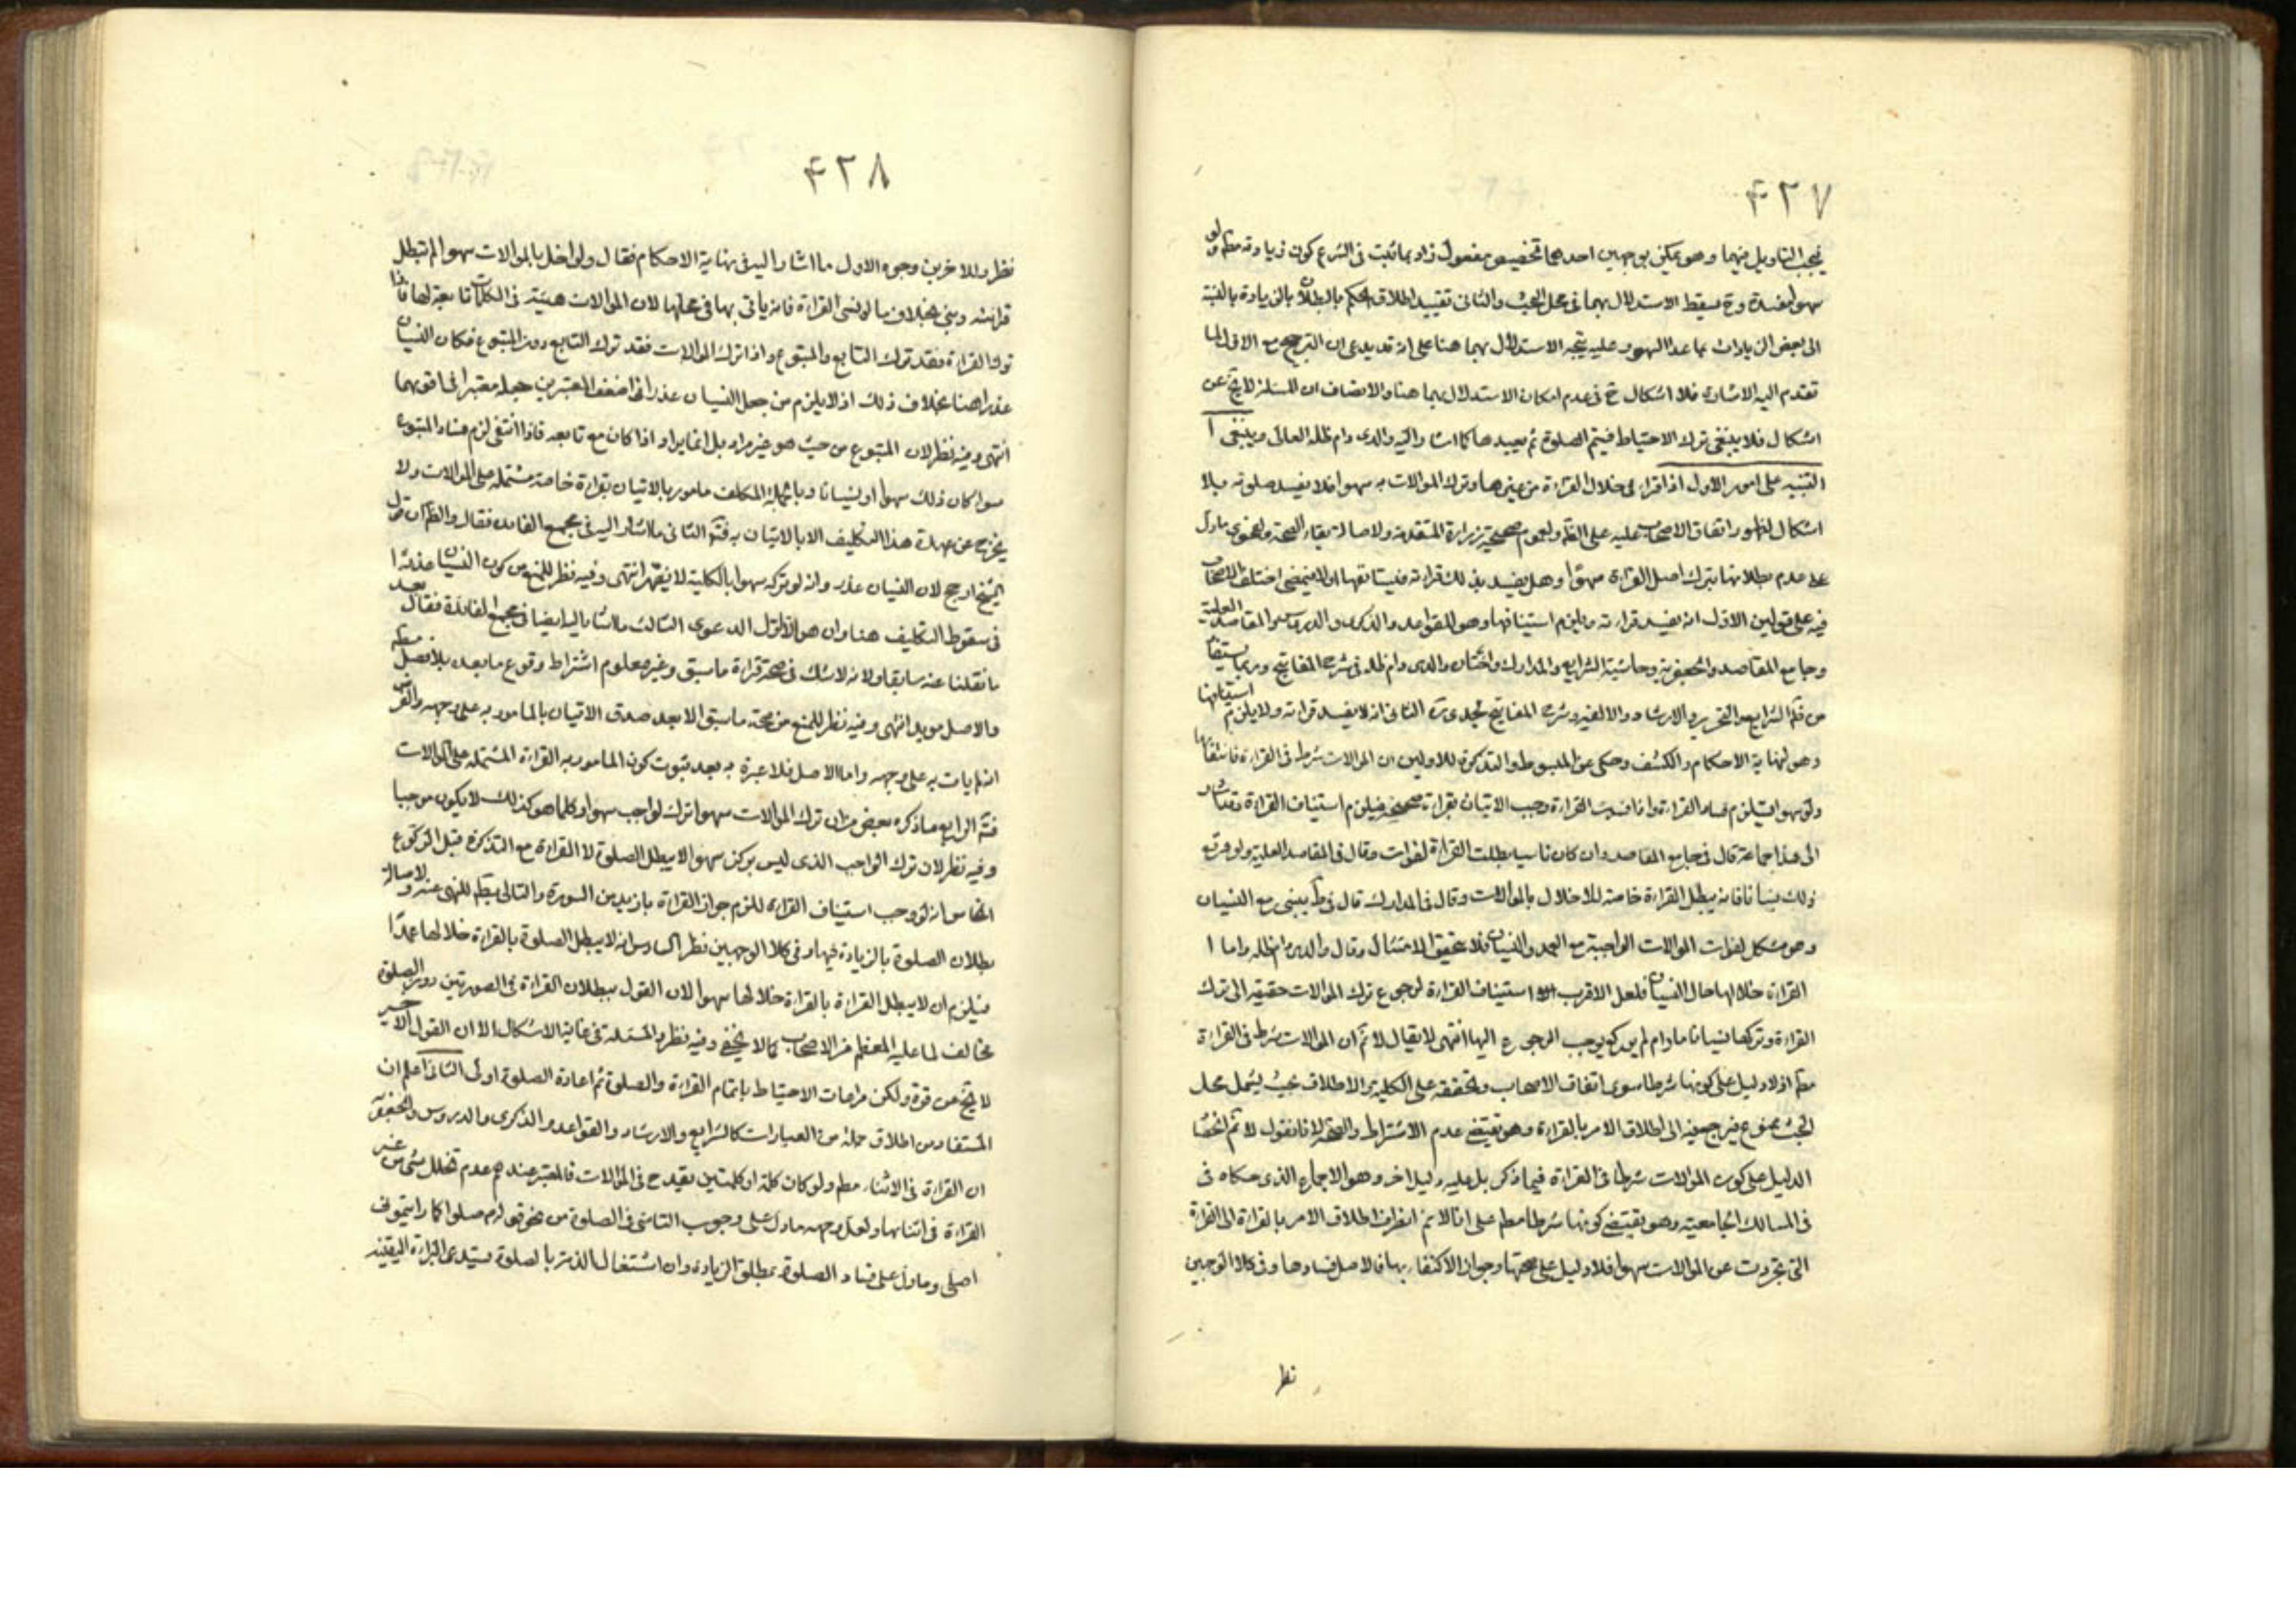 ۴۲۷
فيجب التاويل فيهما وهو يمكن بوجهين احدهما تخصيص مفعول زاد بما ثبت فى الشرع كون زيادته مطم ولو
سهوا مفسدة وح يسقط الاستدلال بهما فى محل البحث والثانى تقييد اطلاق الحكم بالبطلان بالزيادة بالنسبة
الى بعض الزيادات بما عدا السهو وعليه يتجه الاستدلال بهما هنا على انه قد يدعى ان الترجيح مع الاول لما
تقدم اليه الاشارة فلا اشكال ح فى عدم امكان الاستدلال بهما هنا والانصاف ان المسئلة لا يخ عن
اشكال فلا ينبغى ترك الاحتياط فيتم الصلوة ثم يعيدها كما اشار اليه والدى دام ظله العالى وينبغى ا
التنبيه على امور الاول اذا قراء فى خلال القراءة من غيرها وترك الموالات به سهوا فلا يفسد صلوته بلا
اشكال لظهور اتفاق الاصحاب عليه على الظ ولعموم صحيحة زرارة المتقدمة ولاصالة بقاء الصحة ولفحوى ما دل
على عدم بطلانها بترك اصل القراءة سهوا وهل يفسد بذلك قراءته فيستانفها اولا فيمضى اختلف الاصحاب
فيه على قولين الاول انه يفسد قراءته ويلزم استينافها وهو للقواعد والذكرى والدروس والمقاصد العلية
وجامع المقاصد والجعفرية وحاشية الشرايع والمدارك واختاره والدى دام ظله فى شرح المفاتيح وربما يستفاد
من الشرايع والتحرير والارشاد والالفية وشرح المفاتيح لجدى الثانى انه لا يفسد قراءته ولا يلزم استينافها
وهو لنهاية الاحكام والكشف وحكى عن المبسوط والتذكرة للاولين ان الموالات شرط فى القراءة فانتفائها
ولو سهوا يستلزم فساد القراءة واذا فسدت القراءة وجب الاتيان بقراءة صحيحة فيلزم استيناف القراءة وقد اشار
الى هذا جماعة قال فى جامع المقاصد وان كان ناسيا بطلت القراءة لفوات وقال فى المقاصد العلية ولو وقع
ذلك نسيانا فانه يبطل القراءة خاصة للاخلال بالموالات وقال فى المدارك قال فى ط يبنى مع النسيان
وهو مشكل لفوات الموالات الواجبة مع العمد والنسيان فلا يتحقق الامتثال وقال والدى دام ظله واما ا
القراءة خلالها حال النسيان فلعل الاقرب استيناف القراءة لرجوع ترك الموالات حقيقة الى ترك
القراءة وتركها نسيانا مادام لم يركع يوجب الرجوع اليها انتهى لا يقال لا نم ان الموالات شرط فى القراءة
مطم اذ لا دليل على كونها شرطا سوى اتفاق الاصحاب وتحققه على الكلية والاطلاق بحيث يشمل محل
البحث ممنوع فيرجع فيه الى اطلاق الامر بالقراءة وهو يقتضى عدم الاشتراط والصحة لانا نقول لا نم انحصار
الدليل على كون الموالات شرطا فى القراءة فيما ذكر بل عليه دليل اخر وهو الاجماع الذى حكاه فى
فى المسالك الجامعية وهو يقتضى كونها شرطا مطم على انا لا نم انصراف اطلاق الامر بالقراءة الى القراءة
التى تجردت عن الموالات سهوا فلا دليل على صحتها وجواز الاكتفاء بها فالاصل فسادها وفى كلا الوجهين
نظر
۴۲۸
نظر وللاخرين وجوه الاول ما اشار اليه فى نهاية الاحكام فقال ولو اخل بالموالات سهوا لم تبطل
قرائته وبنى بخلاف ما لو نسى القراءة فانه ياتى بها فى محلها لان الموالات هيئة فى الكلمات تابعة لها فاذا
ترك القراءة فقد ترك التابع والمتبوع واذا ترك الموالات فقد ترك التابع دون المتبوع فكان النسيان
عذرا هنا بخلاف ذلك اذ لا يلزم من جعل النسيان عذرا فى اضعف المعتبرين جعله معتبرا فى اقويهما
انتهى وفيه نظر لان المتبوع من حيث هو غير مراد بل انما يراد اذا كان مع تابعه فاذا انتفى لزم فساد المتبوع
سواء كان ذلك سهوا او نسيانا وبالجملة المكلف مامور بالاتيان بقراءة خاصة مشتملة على الموالات ولا
يخرج عن عهدة هذا التكليف الا بالاتيان به فتم الثانى ما اشار اليه فى مجمع الفائدة فقال والظ ان قول
الشيخ ارجح لان النسيان عذر وانه لو تركه سهوا بالكلية لا يضر انتهى وفيه نظر للمنع من كون النسيان عذرا
فى سقوط التكليف هنا وان هو الا اول الدعوى الثالث ما اشار اليه ايضا فى مجمع الفائدة فقال بعد
ما نقلنا عنه سابقا ولانه لا شك فى صحة قراءة ما سبق وغير معلوم اشتراط وقوع ما بعد بلا فصل مطم
والاصل مويد انتهى وفيه نظر للمنع من صحة ما سبق الا بعد صدق الاتيان بالمامور به على وجهه والفرض
انه لم يات به على وجهه واما الاصل فلا عبرة به بعد ثبوت كون المامور به القراءة المشتملة على الموالات
فتم الرابع ما ذكره بعض من ان ترك الموالات سهوا ترك لواجب سهوا وكلما هو كذلك لا يكون موجبا
وفيه نظر لان ترك الواجب الذى ليس بركن سهوا لا يبطل الصلوة لا القراءة مع التذكرة قبل الركوع
الخامس انه لو وجب استيناف القراءة للزم جواز القراءة بازيد من السورة والتالى بط للنهى عنه ولاصالة
بطلان الصلوة بالزيادة فيها وفى كلا الوجهين نظر السادس انه لا يبطل الصلوة بالقراءة خلالها عمدا
فيلزم ان لا يبطل القراءة بالقراءة خلالها سهوا لان القول ببطلان القراءة فى الصورتين دون الصلوة
مخالف لما عليه المعظم من الاصحاب كما لا يخفى وفيه نظر والمسئلة فى غاية الاشكال الا ان القول الاخير
لا يخ من قوة ولكن مراعات الاحتياط باتمام القراءة والصلوة ثم اعادة الصلوة اولى الثانى اعلم ان
المستفاد من اطلاق جملة من العبارات كالشرايع والارشاد والقواعد والذكرى والدروس والجعفرية
ان القراءة فى الاثناء مطم ولو كان كلمة او كلمتين يقدح فى الموالات فالمعتبر عندهم عدم تخلل شئ من غير
القراءة فى اثنائها ولعل وجهه ما دل على وجوب التاسى فى الصلوة من نحو قوله صلوا كما رايتمونى
اصلى وما دل على فساد الصلوة بمطلق الزيادة وان اشتغال الذمة بالصلوة يستدعى البراءة اليقينية